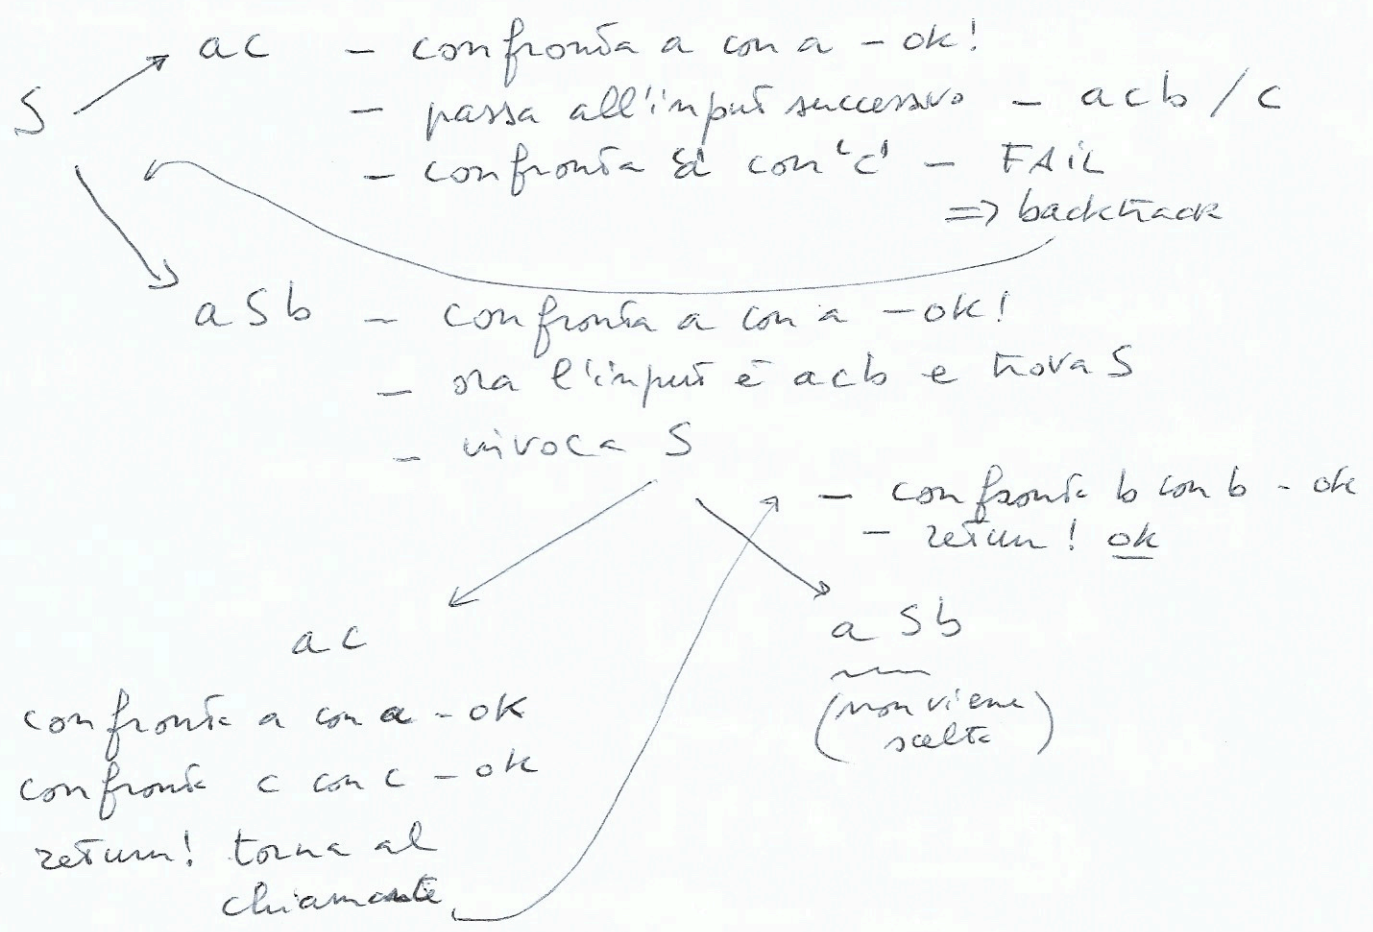 S
ac - confronta a con a - ok!
- passa all'input successivo - acb / c
- confronta 'a' con 'c' - FAIL
=> backtrack
aSb - confronta a con a - ok!
- ora l'input è acb e trova S
- invoca S
- confronta b con b - ok
- return! ok
ac
aSb
(non viene
scelta)
confronta a con a - ok
confronta c con c - ok
return! torna al
chiamante